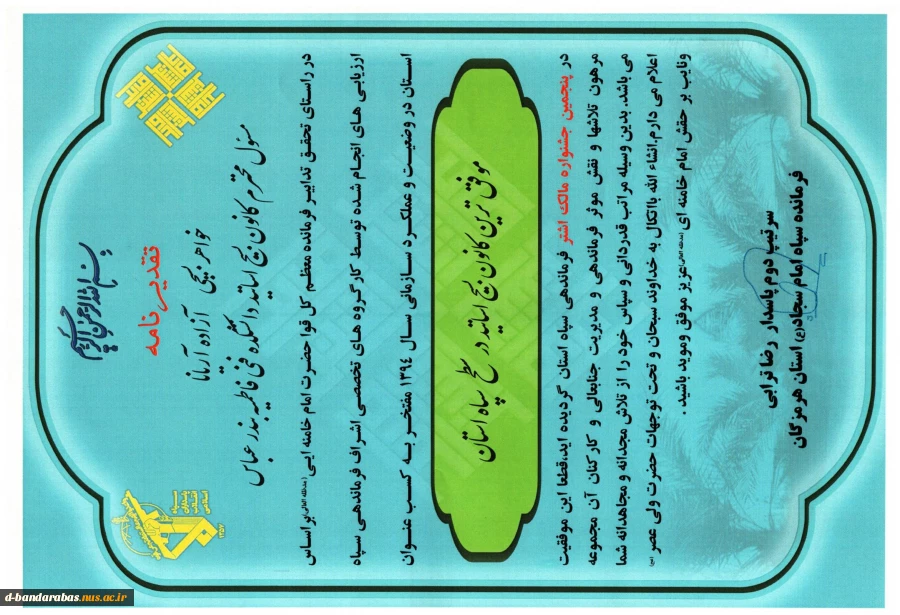 بسم الله الرحمن الرحیم
تقدیرنامه
خواهر بسیجی آزاده آرمانا
مسئول محترم کانون بسیج اساتید دانشکده فنی فاطمیه بندرعباس
در راستای تحقق تدابیر فرمانده معظم کل قوا حضرت امام خامنه ایی(مدظله العالی)بر اساس
ارزیابی های انجام شده توسط کارگروه های تخصصی اشراف فرماندهی سپاه
استان در وضعیت و عملکرد سازمانی سال ۱۳۹٤ مفتخر به کسب عنوان
موفق ترین کانون بسیج اساتید در سطح سپاه استان
در پنجمین جشنواره مالک اشتر فرماندهی سپاه استان گردیده اید،قطعا این موفقیت
مرهون تلاشها و نقش موثر فرماندهی و مدیریت جنابعالی و کارکنان آن مجموعه
می باشد. بدین وسیله مراتب قدردانی و سپاس خود را از تلاش مجدانه و مجاهدانه شما
اعلام می دارم.انشاء الله باتکال به خداوند سبحان و تحت توجهات حضرت ولی عصر (عج)
ونایب بر حقش امام خامنه ای (مدظله العالی) عزیز موفق وموید باشید .
سرتیپ دوم پاسدار رضا ترابی
فرمانده سپاه امام سجاد(ع) استان هرمزگان
سپاه
پاسداران
انقلاب
اسلامی
۱۳۵۷
d-bandarabas.nus.ac.ir